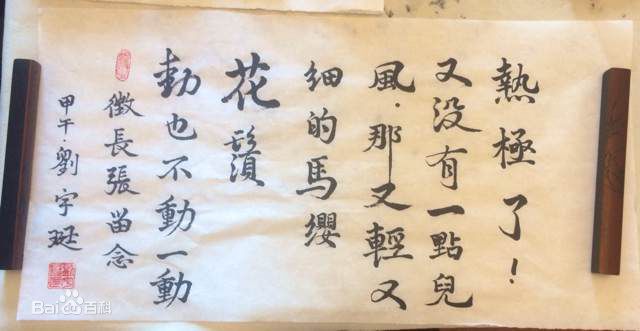 熱極了！
又没有一點兒
風．那又輕又
細的馬纓
花鬚
動也不動一動
徵長張留念
甲午．劉宇珽
Bai百科